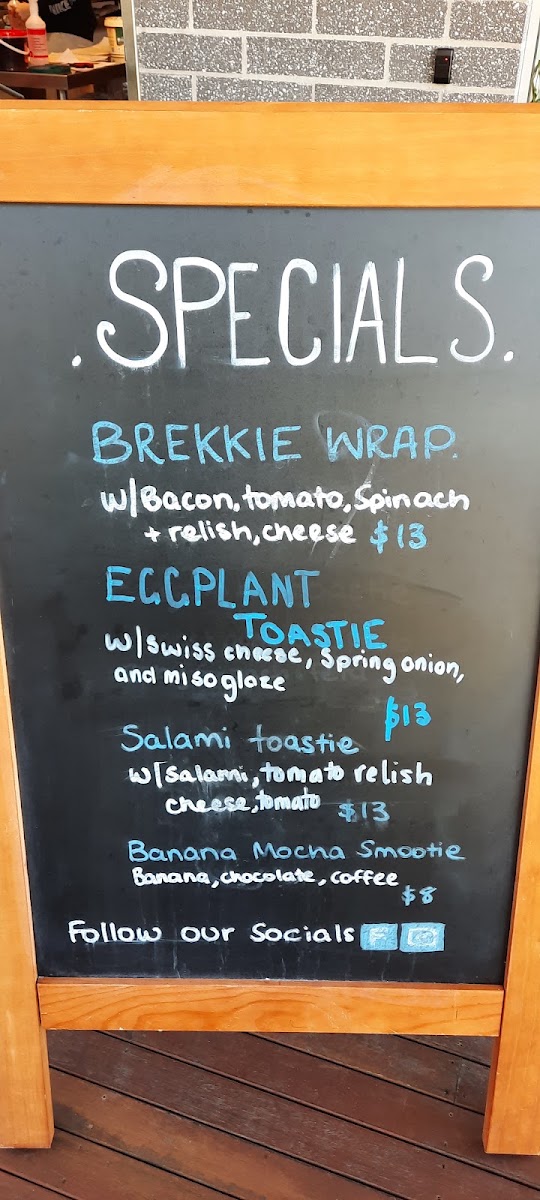 .SPECIALS.
BREKKIE WRAP.
w/Bacon, tomato, Spinach
+ relish, cheese $13
EGGPLANT
TOASTIE
w/swiss cheese, spring onion,
and miso glaze
$13
Salami toastie
w/salami, tomato relish
cheese, tomato $13
Banana Mocha Smootie
Banana, chocolate, coffee
$8
Follow our Socials F